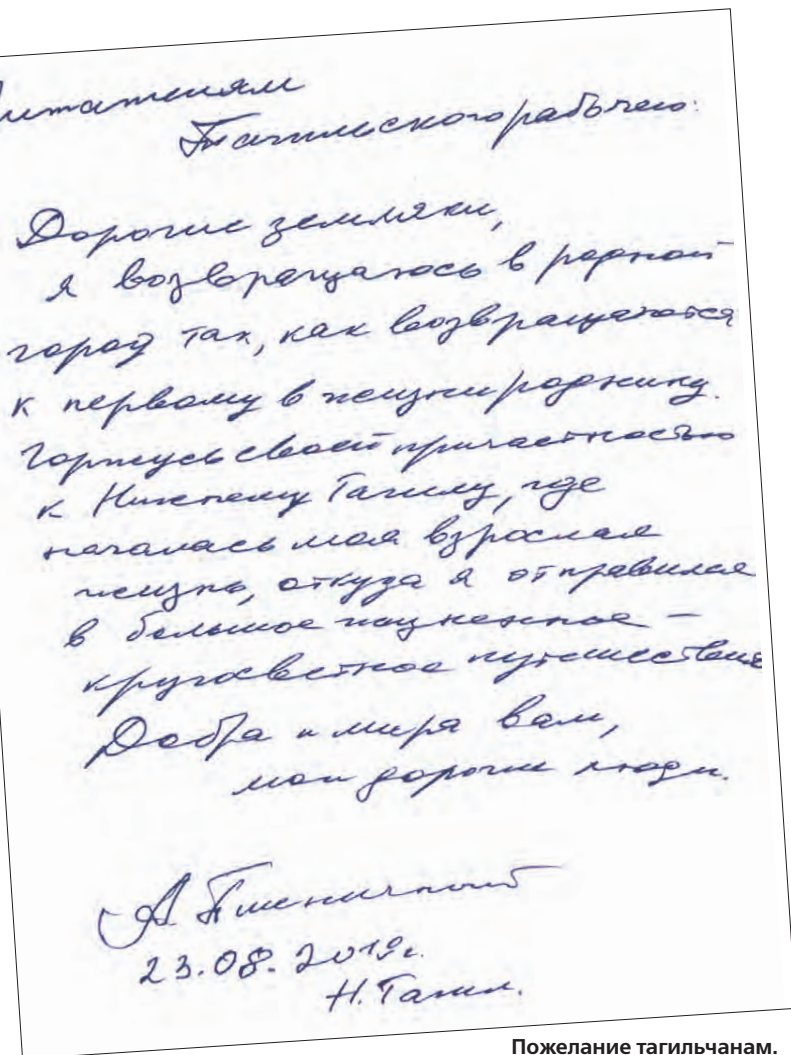 Читателям
Тагильского рабочего:
Дорогие земляки,
я возвращаюсь в родной
город так, как возвращаются
к первому в жизни роднику.
Горжусь своей причастностью
к Нижнему Тагилу, где
началась моя взрослая
жизнь, откуда я отправился
в большое жизненное –
кругосветное путешествие
Добра и мира вам,
мои дорогие люди.
А. Пшеничный
23.08.2019г.
Н. Тагил.
Пожелание тагильчанам.